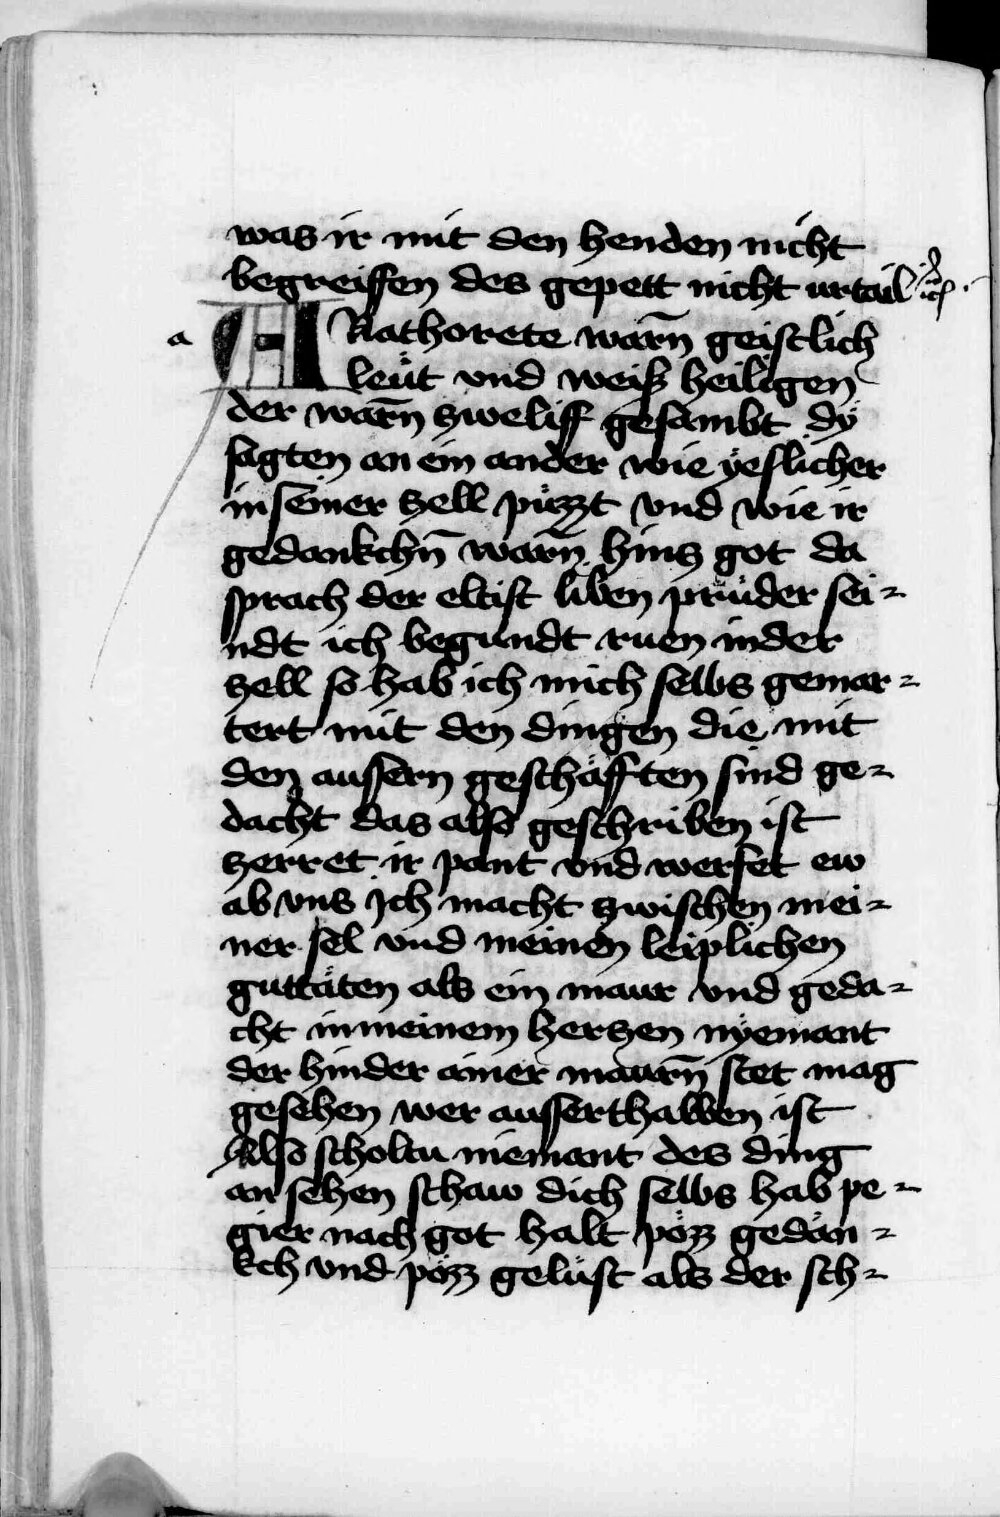 was ir mit den henden nicht
begreiffen des gepett nicht urtail
a
ANathorete warn̄ geistlich
leüt vnd weiß heiligen
der warn̄ zweliff gesambt dÿ
sagten an ein ander wie ÿeslicher
in seiner zell püzzt vnd wie ir
gedankchn̄ warn̄ hinz got da
sprach der eltist liben prüder sei⸗
ndt ich begundt ruen in der
zell so hab ich mich selbs gemar⸗
tert mit den dingen die mit
den aussern geschäfften sind ge⸗
dacht das also geschriben ist
zerret ir pant vnd werfet ew
ab vns Ich macht zwischen mei⸗
ner sel vnd meinen leiplichen
guttäten als ein maur vnd geda⸗
cht in meinem herzen nÿemant
der hinder ainer maurn̄ stet mag
gesehen wer ausserthalben ist
Also scholtu niemant des ding
an sehen schaw dich selbs hab pe⸗
gier nach got halt pözz gedän⸗
kch vnd pözz gelüst als der sch⸗